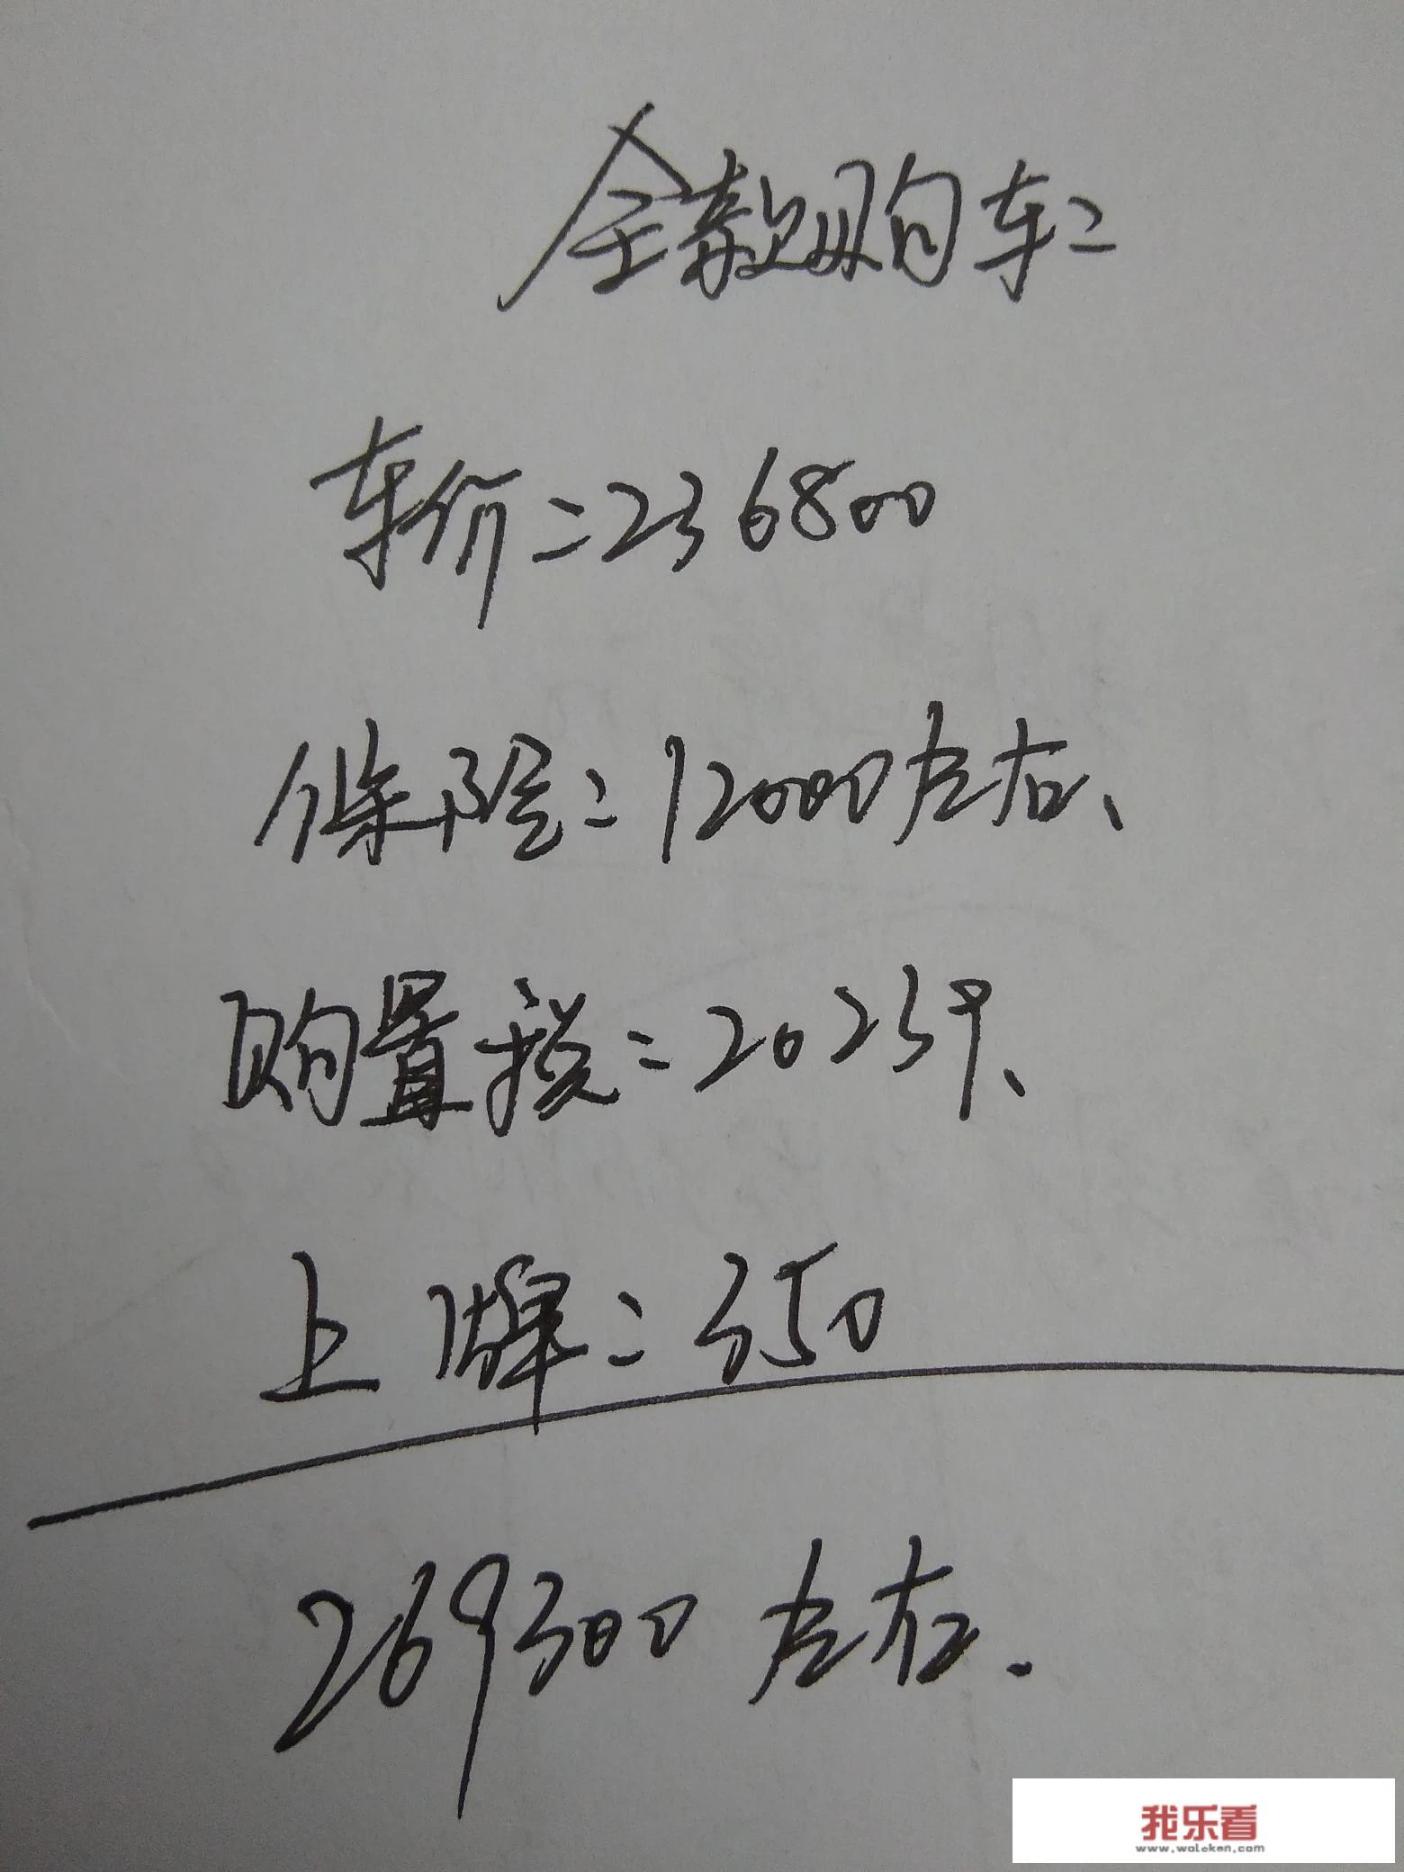 全款购车=
车价=236800
保险=12000左右、
购置税=20239、
上牌=350
269300左右.
我乐看
www.woleken.com